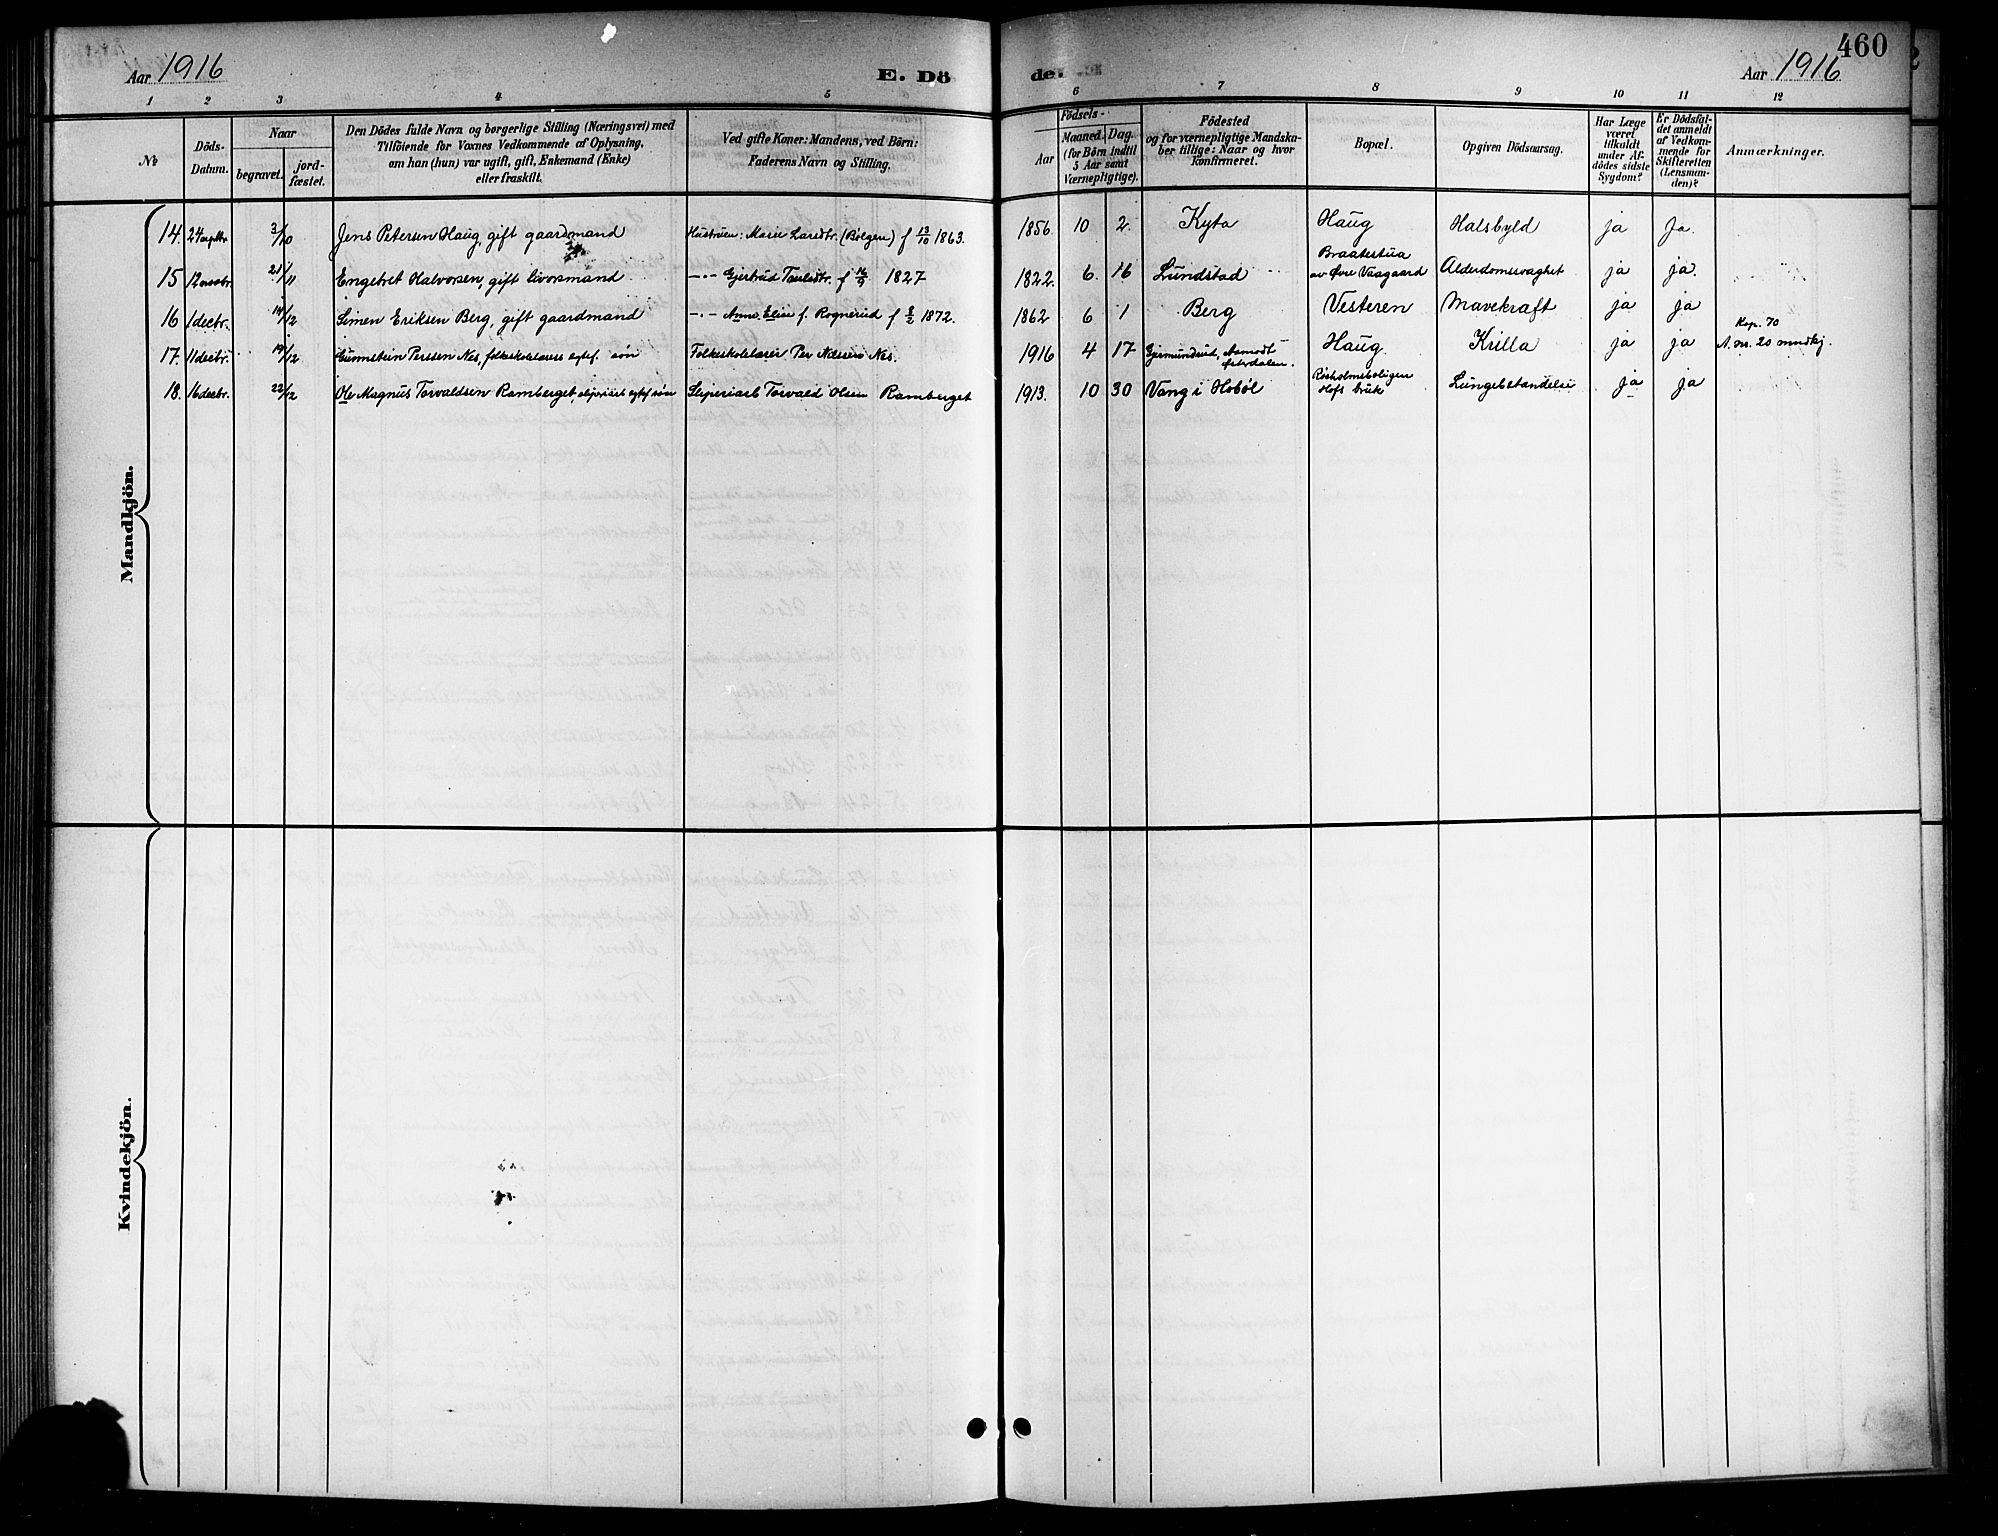 Aar 1916
E. Dö
de
460
Aar 1916
1 2 3 4 5 6 7 8 9 10 11 12
No
Döds-
Datum.
Naar
begravet.
jord-
fæstet.
Den Dödes fulde Navn og borgerlige Stilling (Næringsvei) med
Tilföiende for Voxnes Vedkommende af Oplysning,
om han (hun) var ugift, gift, Enkemand (Enke)
eller fraskilt.
Ved gifte Koner: Mandens, ved Börn:
Faderens Navn og Stilling.
Födsels-
Aar
Maaned. Dag.
(for Börn indtil
5 Aar samt
Værnepligtige).
Födested
og for værnepligtige Mandska-
ber tillige: Naar og hvor
Konfirmeret.
Bopæl.
Opgiven Dödsaarsag.
Har Læge
været
tilkaldt
under Af-
dödes sidste
Sygdom?
Er Dödsfal-
det anmeldt
af Vedkom-
mende for
Skifteretten
(Lensman-
den)?
Anmærkninger.
Mandkjön.
14. 24 septbr. 3/10 Jens Petersen Haug, gift gaardmand Hustruen: Marie Larsdtr. (Bolgen) f 13/10 1863. 1856 10 2. Kyta Haug Halsbyld ja Ja.
15 12 novbr. 21/11 Engebret Halvorsen, gift livorsmand —"— Gjertrud Paulsdtr. f 16/9 1827 1822. 6. 16 Lundstad Braatestua
av Øvre Vaagaard Alderdomssvaghet ja ja.
16 1 decbr. 14/12 Simen Eriksen Berg, gift gaardmand —"— Anne Elise f. Rognerud f 8/2 1872. 1862 6 1 Berg Vesteren Mavekræft ja ja
17. 11 decbr. 19/12 Gunnstein Perssen Nes, folkeskolelærers egtef. sön Folkeskolelærer Per Nilssen Nes. 1916 4 17 Gjermundrud, Aamodt
Østerdalen. Haug. Krilla ja ja Kap. 70
A. nr. 20 mndkj.
18. 16 decbr. 22/12 Ole Magnus Torvaldsen Ramberget, sliperiarb. egtef sön Sliperiarb Torvald Olsen Ramberget 1913. 10 30 Vang i Hobøl Rosholmsboligen
Hofs bruk Lungebetændelse ja ja
Kvindekjön.